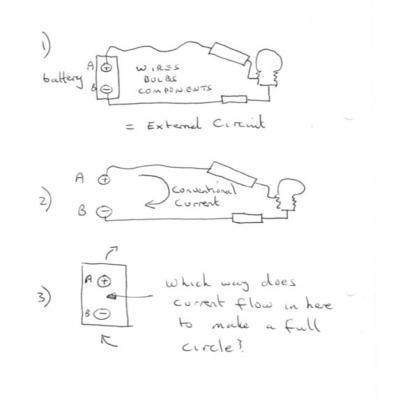 1)
A ⊕
WIRES
BULBS
COMPONENTS
battery
B ⊖
= External Circuit
2)
A ⊕
Conventional
Current
B ⊖
3)
A ⊕
B ⊖
Which way does
current flow in here
to make a full
circle?